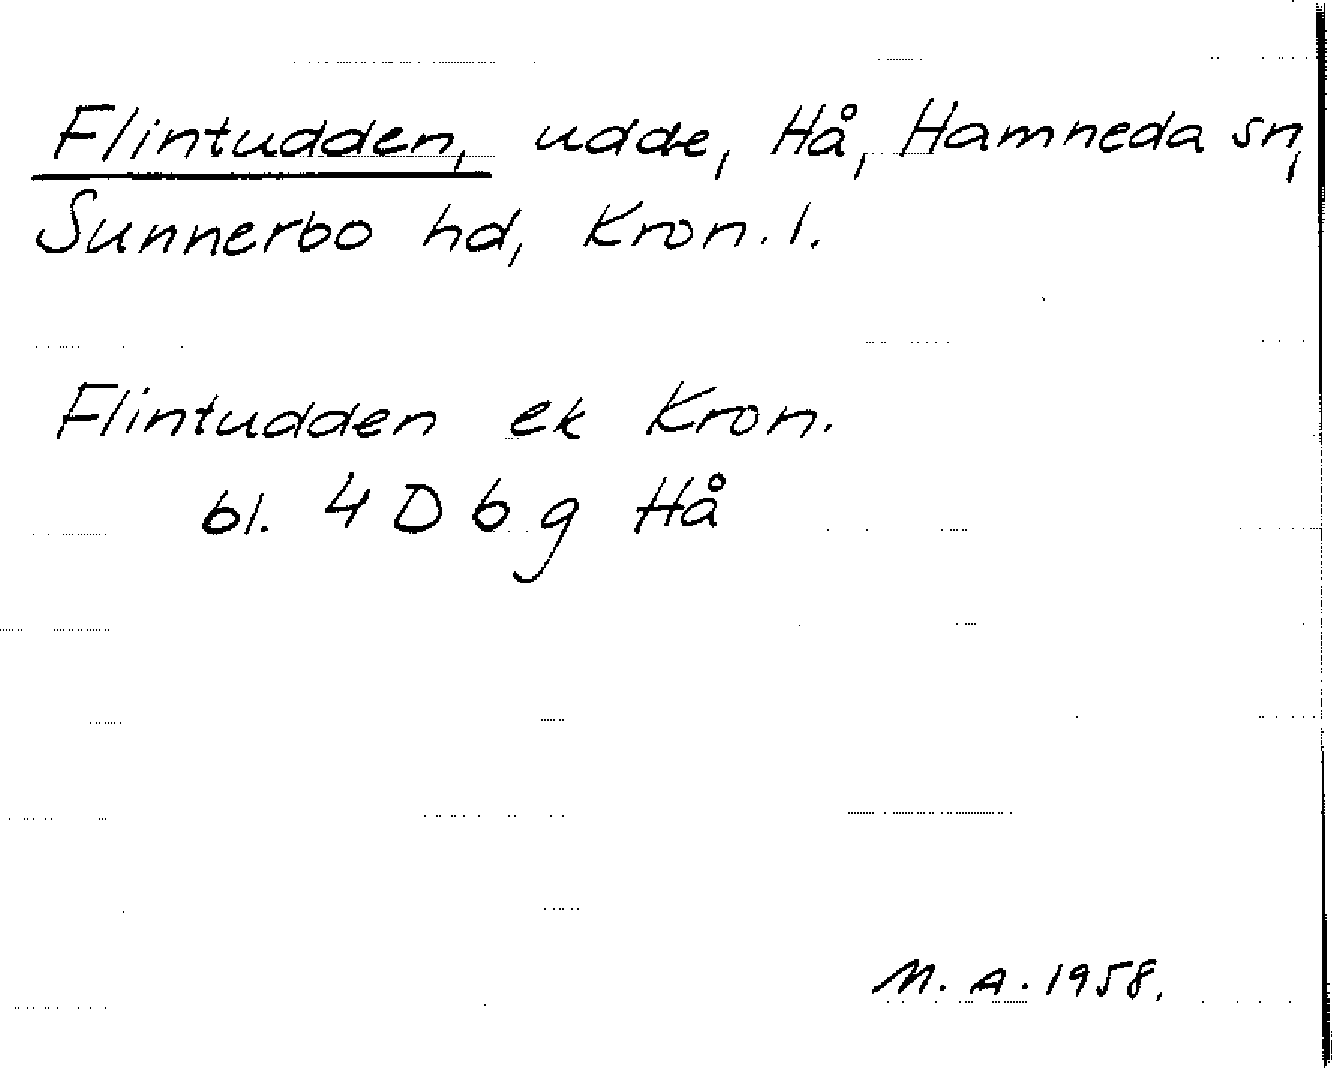 Flintudden, udde, Hå, Hamneda sn,
Sunnerbo hd, Kron. l.
Flintudden ek Kron.
bl. 4 D b g Hå
M. A. 1958.